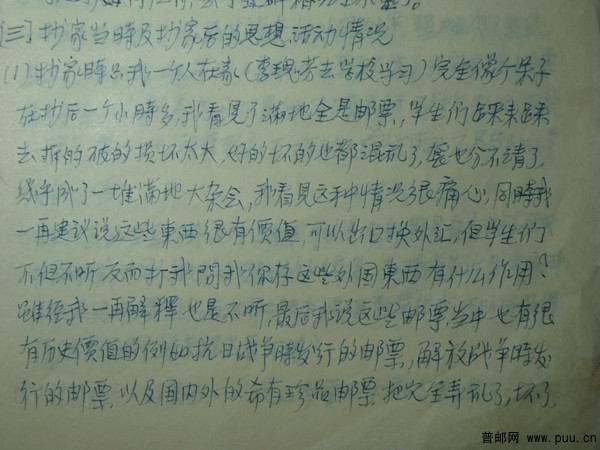 (三)抄家当時及抄家后的思想活动情况
(1)抄家時只我一个人在家(李瑰芳去学校学习)完全像个呆子
在抄后一个小時多,我看見了滿地全是邮票,学生们踩来踩
去拆的破的損坏太大,好的坏的也都混乱了,套也分不清了,
几乎成了一堆滿地大杂会,我看見这种情况很痛心,同時我
一再建议说这些東西很有價值,可以出口换外汇,但学生们
不但不听反而打我問我你存这些外国東西有什么作用?
雖经我一再解釋也是不听,最后我说这些邮票当中也有很
有历史價值的例如抗日战争時发行的邮票,解放战争時发
行的邮票,以及国内外的希有珍品邮票把完全弄乱了,坏了
普邮网 www.puu.cn